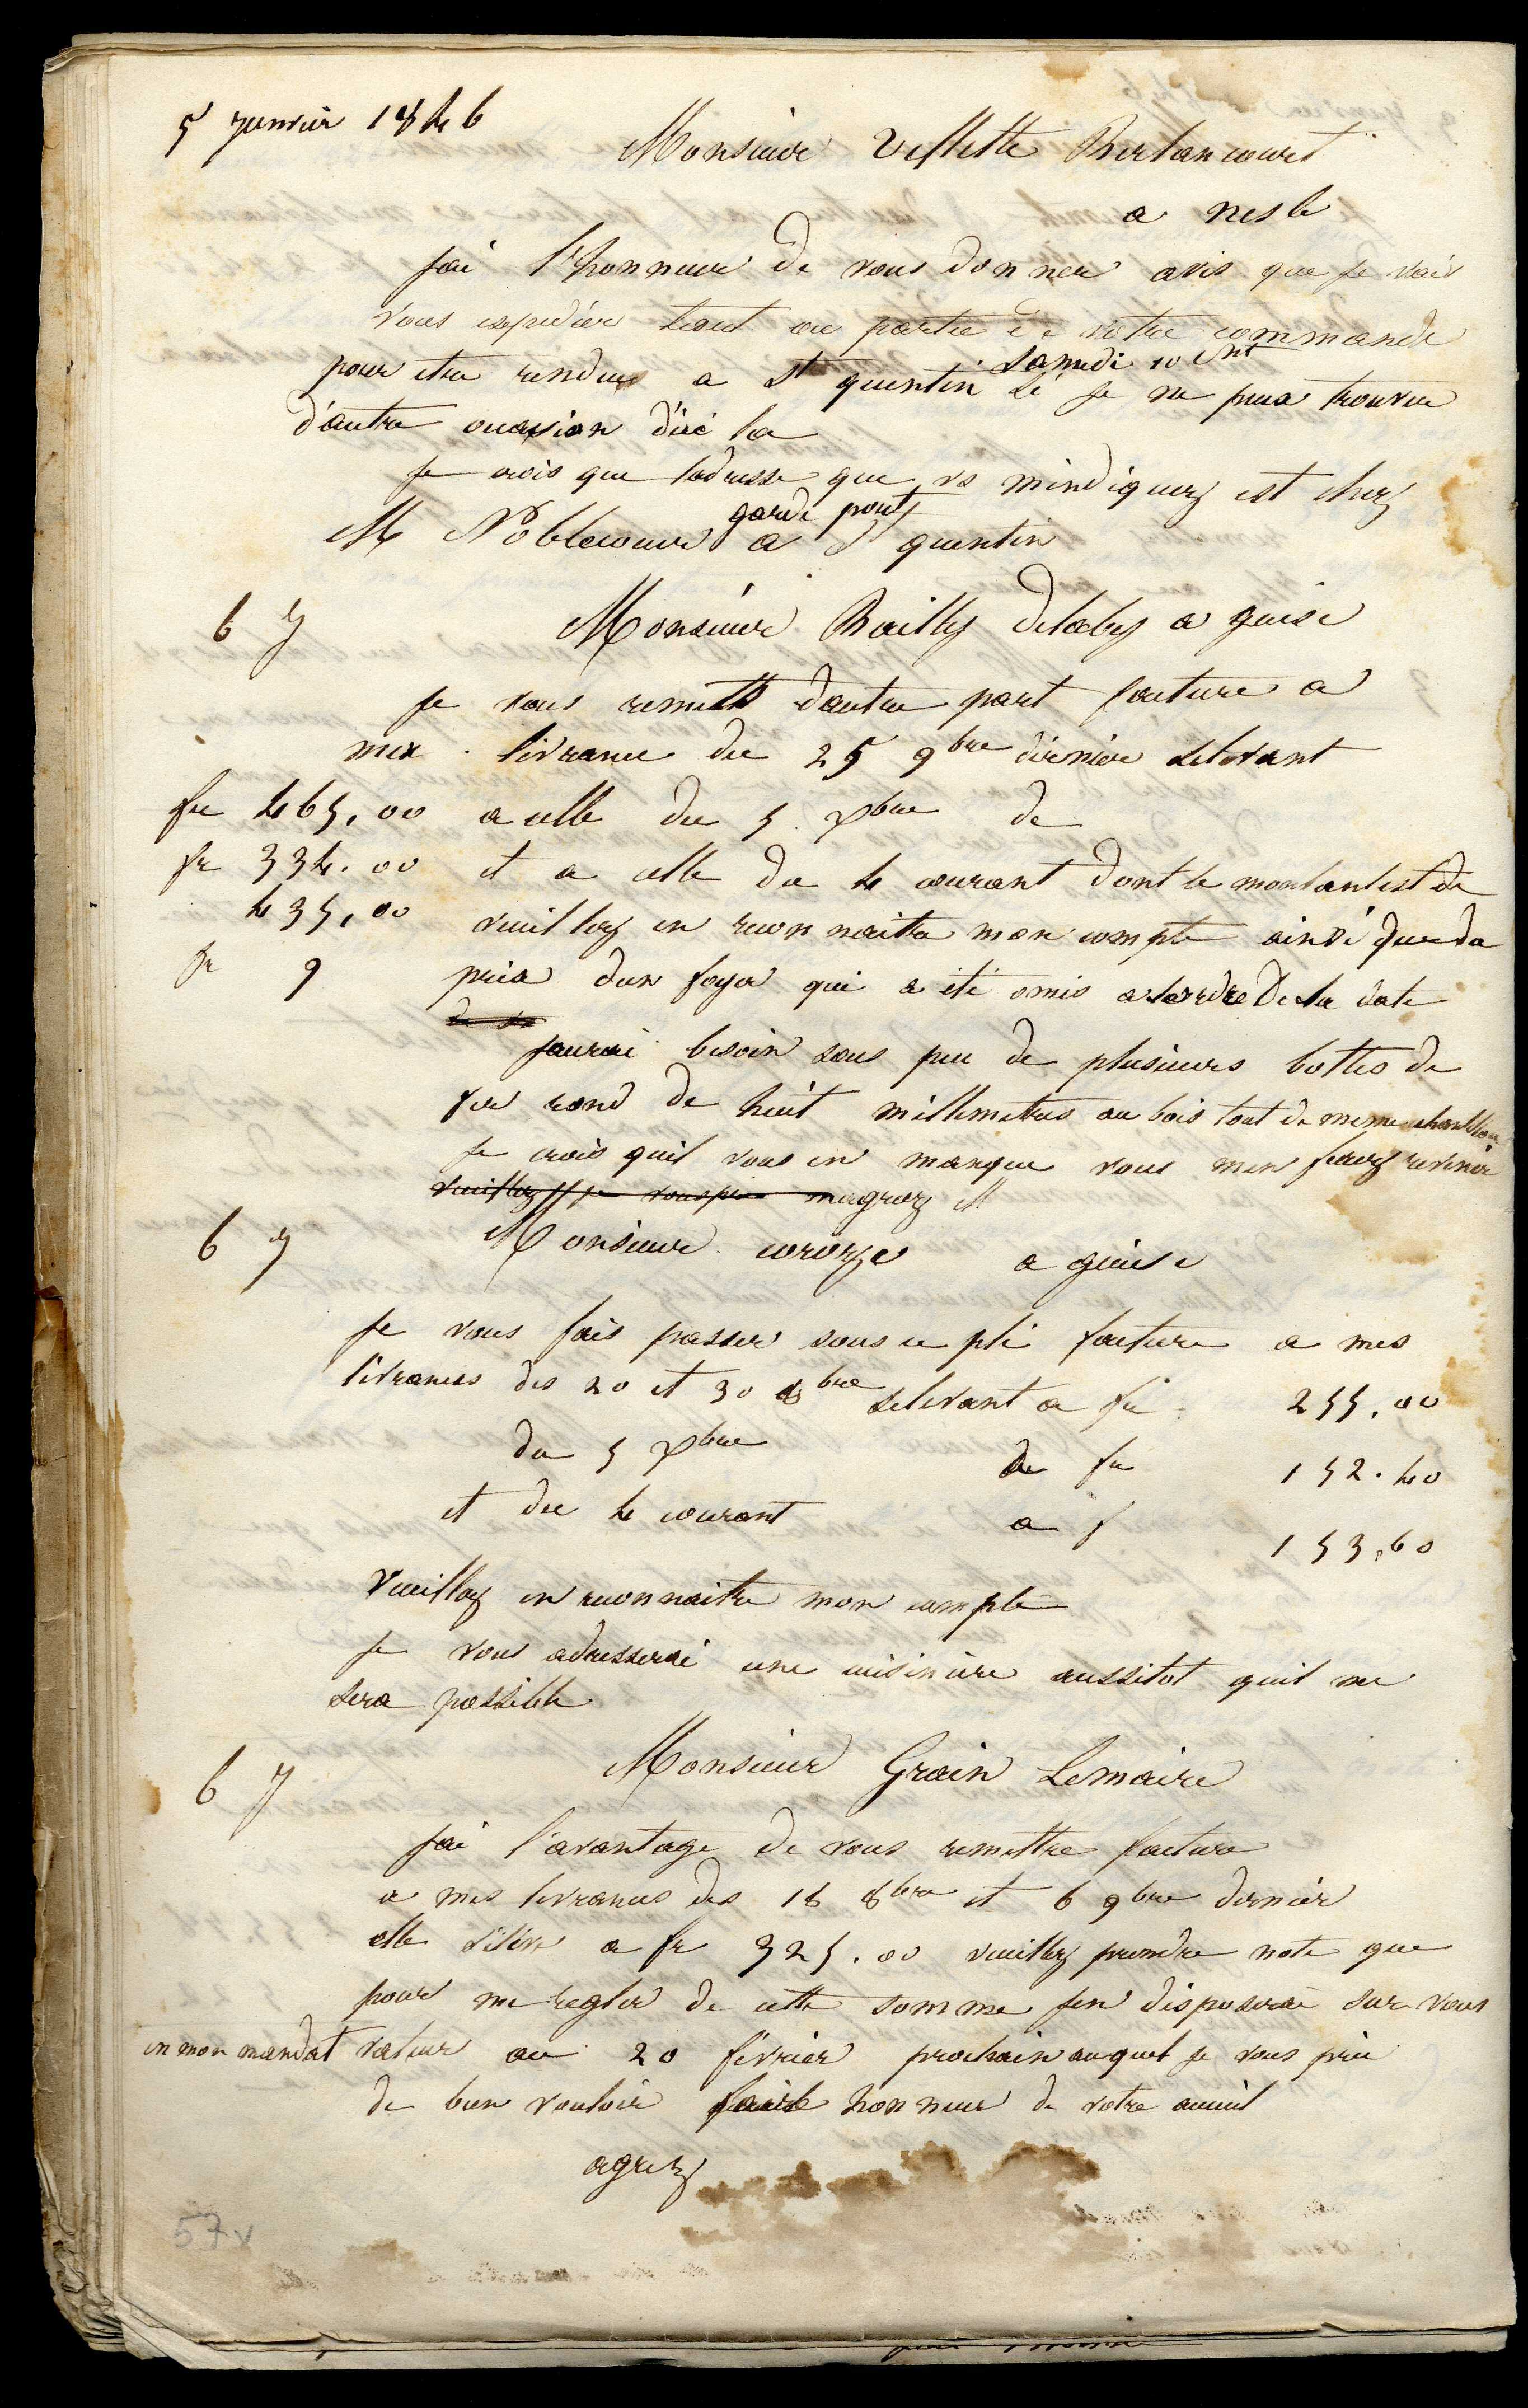 5 janvier 1846
Monsieur Veflette Berlancourt
a nesle
jai l'honneur de vous donner avis que je vais
vous expedier tout ou partie de votre commande
pour etre rendue a St quentin samedi 10 ct si je ne puis trouver
d'autre occasion d'ici la
je crois que ladresse que vs mindiquez est chez
M Noblecour garde pont a St quentin
6 J Monsieur Bailly Delaby a guise
je vous remets dautre part facture a
mex livrance du 25 9bre dernier selevant
fr 465,00 a celle du 5 Xbre de
fr 334.00 et a celle du 4 courant dont le montant est de
435,00 veuillez en reconnaitre mon compte ainsi que du
fr 9 prix dun foyer qui a été omis a lordre de la date
de la
jaurai besoin sous peu de plusieurs bottes de
fer rond de huit millimetres au bois tout de meme echantillon
je crois quil vous en manque vous men ferez revenir
veuillez je vous prie magreez M
6 J Monsieur cororge a guise
je vous fais passer sous ce pli facture a mes
livrances des 20 et 30 8bre selevant a fr 255,00
du 5 Xbre de fr 152.40
et du 4 courant a f 153,60
Veuillez en reconnaitre mon compte
je vous adresserai une cuisinière aussitot quil me
sera possible
6 J Monsieur Grain Lemaire
jai l'avantage de vous remettre facture
a mes livrances des 18 8bre et 6 9bre dernier
elle s'élève a fr 325.00 veuillez prendre note que
pour me regler de cette somme jen disposerai sur vous
en mon mandat valeur au 20 février prochain auquel je vous prie
de bien vouloir faire honneur de votre accueil
agreez
57v